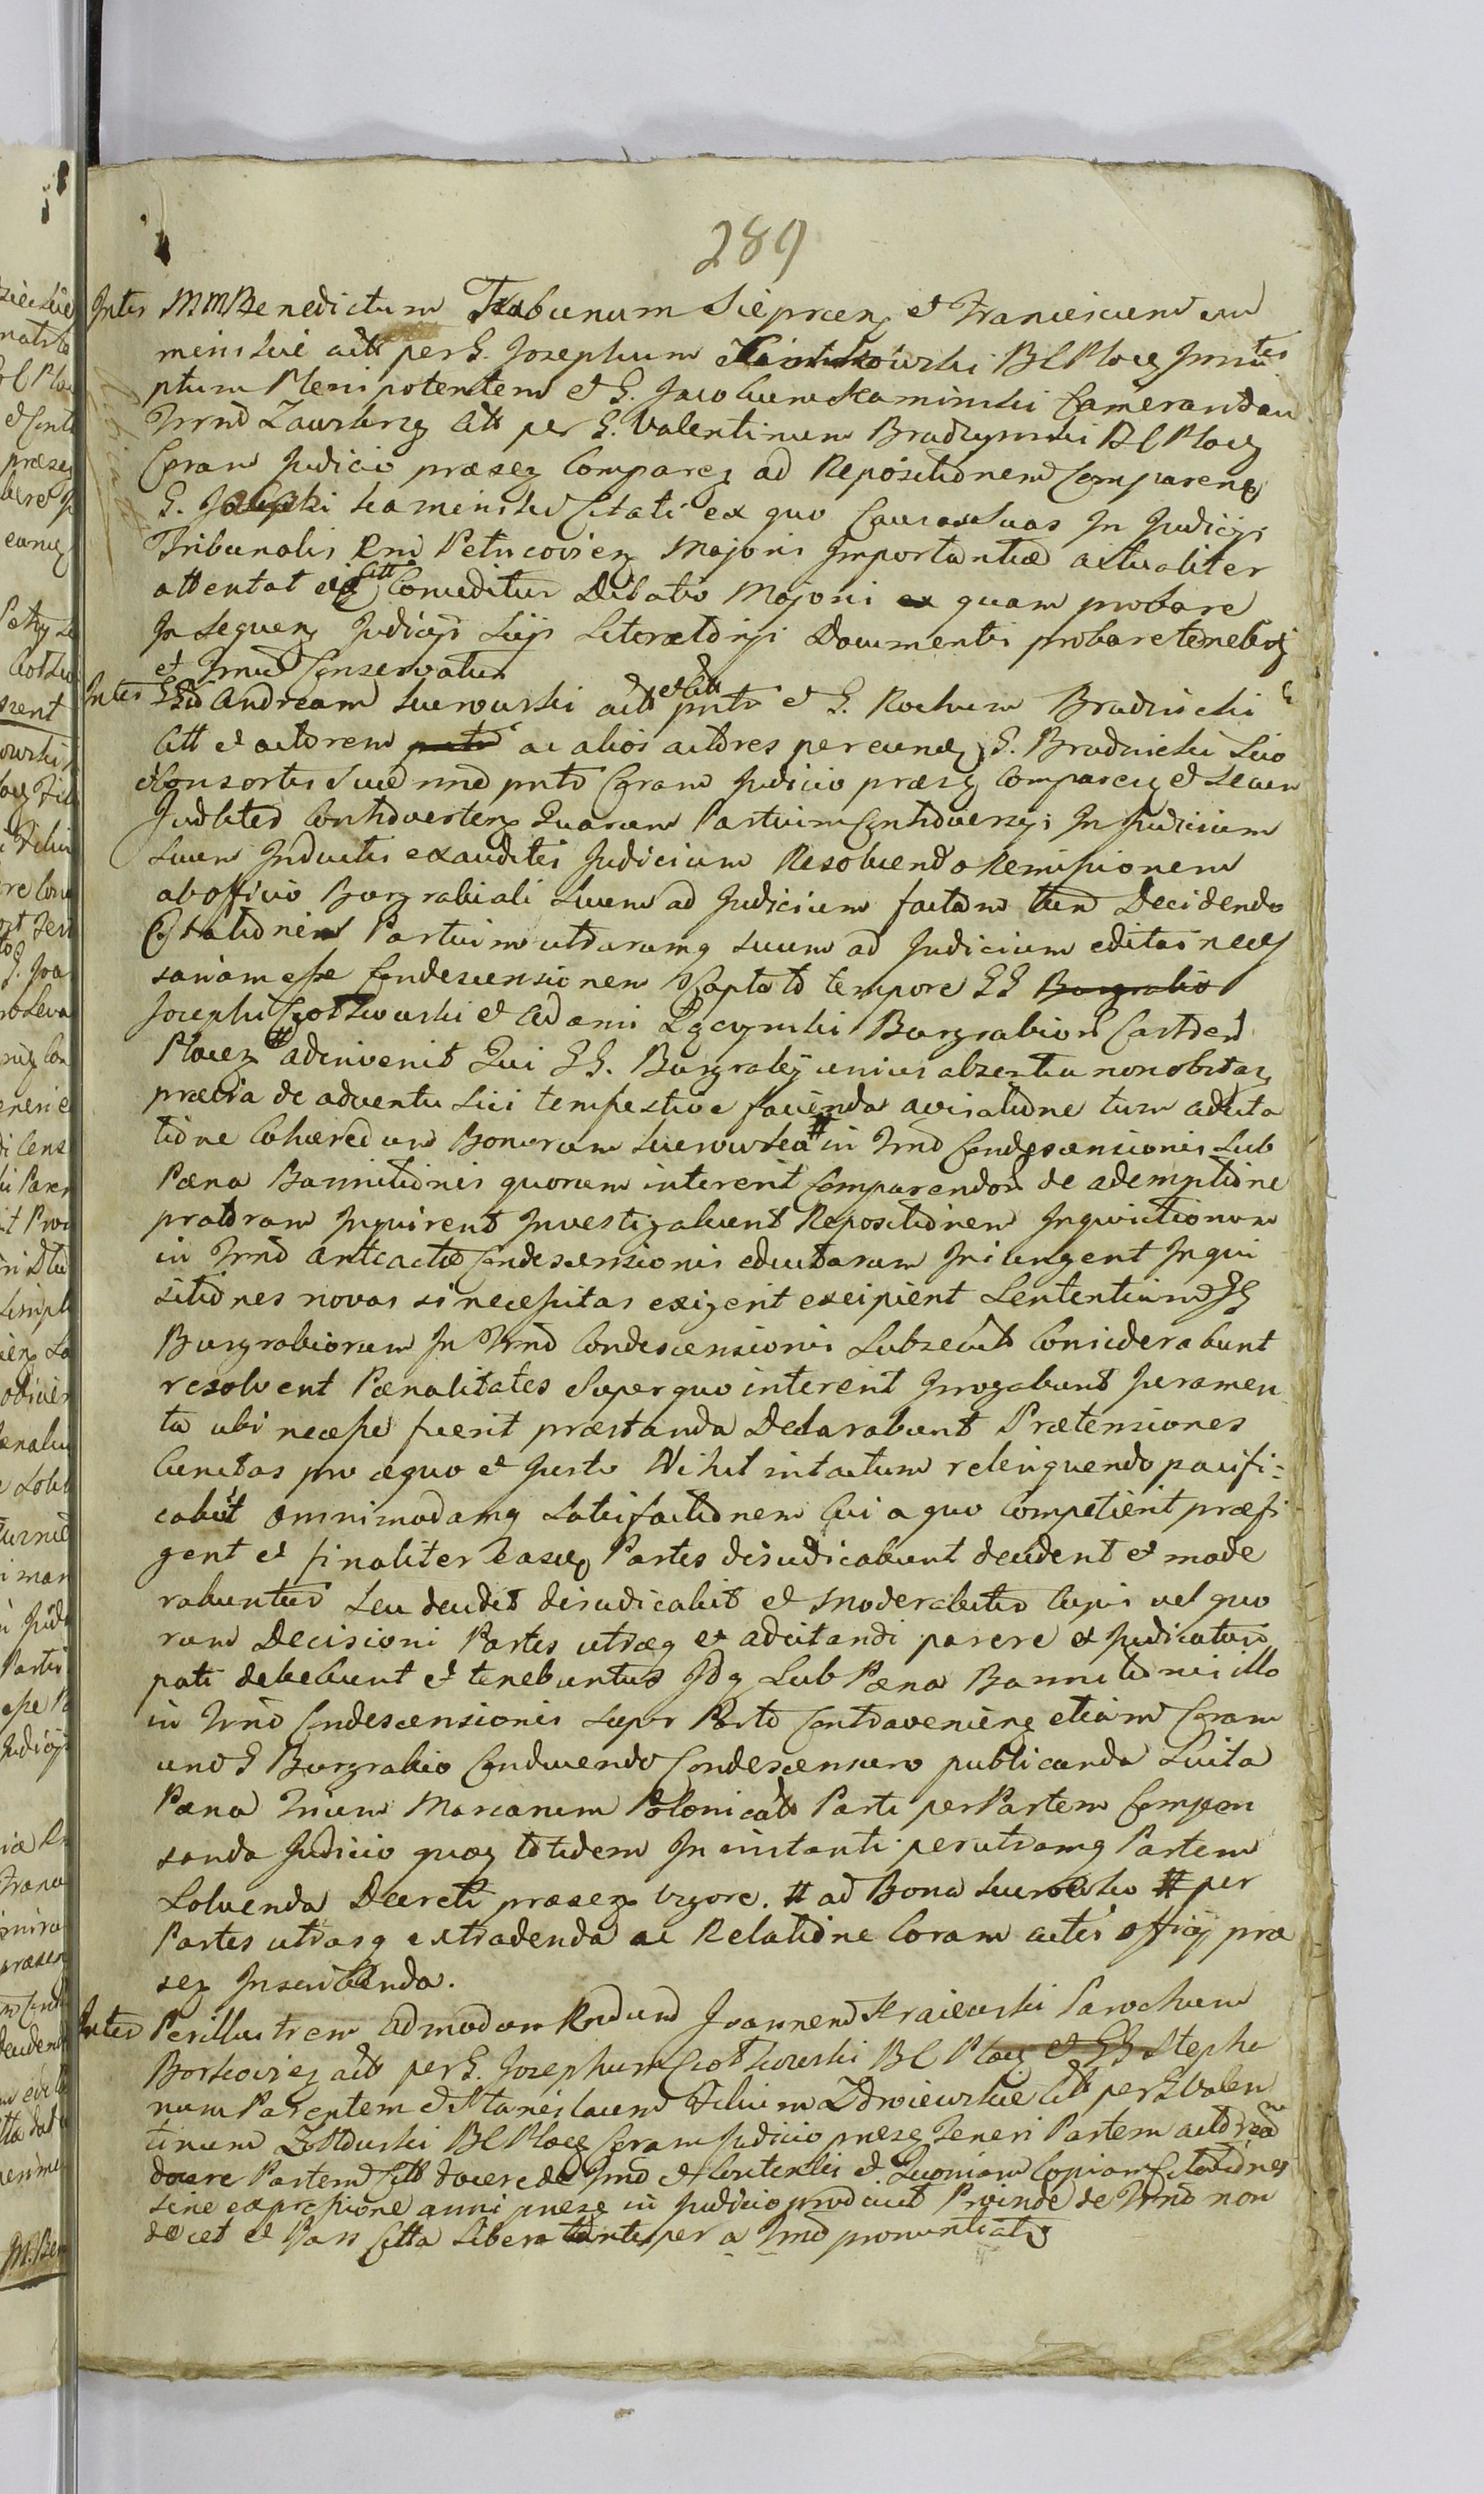 289
Inter MM Benedictum Tribunum Sieprcen et Franciscum
minskie actt per G. Josephum BC Ploc
ptum Plenipotentem et G. Jacobum Kaminski Camerarium
Trrnd Zawskrz Citt per G. Valentinum Brudzynski BC Ploc
Coram Judicio præsez Comparez ad Repositionem Comparenz
G. Josephi Kaminski Citati ex quo Causas Suas In Judicijs
Tribunalis Rni Petricovien Majoris Importantiæ actualiter
attentat Citt Conceditur Dilatio Majoris quam probare
In Sequenz Judicijs Suis Literatorijs Documentis probare tenebit
et Trnus Conservatur
Inter GG Andream Surowski actt et Citt pntr et G. Rochum Brudnicki
Citt et actorem ac alios actores per eunq G. Brudnicki Suo
et Consortis Suæ nne pnts Coram Judicio præsz Comparez et Seu
Judliter Controverten Quarum Partium Controversijs In Judicium
Suum Inductis exauditis Judicium Resolvendo Remissionem
ab officio Burgrabiali Suum ad Judicium factam tum Decidendo
Citationem Partium utrarumq suum ad Judicium editas neces
sariam esse Condescensionem Captato tempore GG
Josephi et Adami Burgrabiorum Castren
Plocen # adinvenit Qui GG. Burgrabij unius absentia non obstan
prævia de adventu Sui tempestive facienda avisatione tum adcita
tione Cohæredum Bonorum Surowska # in Trno Condescensionis Sub
Pæna Bannitionis quorum intererit Comparendor de ademptione
pratorum Inquirent Investigabunt Repositionem Inquisitionum
in Trno anteactæ Condescensionis eductarum Iniungent Inqui
sitiones novas si necessitas exigerit excipient Sententiam GG
Burgrabiorum In Trno Condescensionis Subsecut Considerabunt
resolvent Pænalitates Super quo intererit Irrogabunt Juramen
ta ubi necesse fuerit præstanda Declarabunt Prætensiones
Cunctas pro æquo et Justo Nihil intactum relinquendo pacifi=
cabunt omnimodamq Satisfactionem Cui a quo Competierit præfi
gent et finaliter easdem Partes dijudicabunt decident et mode
rabuntur Seu decidet dijudicabit et moderabitur Cujus vel quo
rum Decisioni Partes utræq et adcitandi parere et Judicatum
pati debebunt et tenebuntur Idq Sub Pæna Bannitionis illo
in Trno Condescensionis Super Parte Contravenienz etiam Coram
uno G Burgrabio Conducendo Condescensuro publicanda Luita
Pæna Trium Marcarum Polonicalt Parti per Partem Compen
sanda Judicio quoq totidem In instanti per utramq Partem
Solvenda Decreti præsez vigore. # ad Bona Surowsko # per
Partes utrasq extradenda ac Relatione Coram actis officij præ
sez Inscribenda.
Inter Perillustrem Admodum Rndum Joannem Krajewski Parochum
Borkovicz actt per G. Josephum BC Plocz et GG Stepha
num Parentem et Stanislaum Filium Zdroiewskie Citt per G Valen
tinum BC Ploc Coram Judicio præsz Teneri Partem actoream
docere Partem Citt docere de Trno et Contentis et Quoniam Copiam Citationis
sine expressione anni præsz in Judicio producit Proinde de Trno non
docet et Pars Citta Libera a Trno pronuntiatr